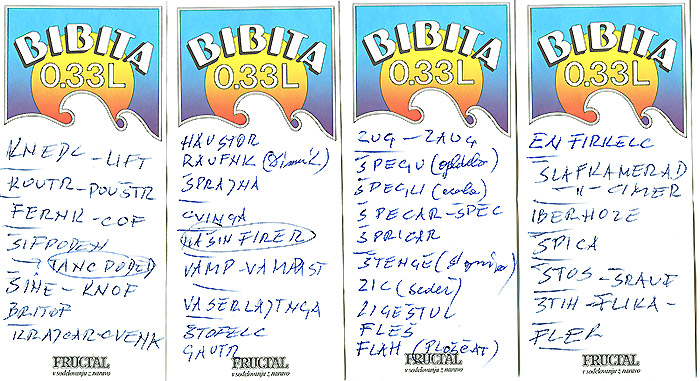 BIBITA
0.33L
KNEDL - LIFT
KOUTR - POUŠTR
FERNK - COF
ŠIFPODEN
TANCPODED
ŠINE - KNOF
BRITOF
KRAJCAR - CVENK
FRUCTAL
v sodelovanju z naravo
BIBITA
0.33L
HAUSTOR
RAUFNK (dimnik)
ŠPRAJHA
CVINGA
MAŠINFIRER
VAMP - VAMPAST
VASERLAJTNGA
ŠTOFELC
GAUTR
FRUCTAL
v sodelovanju z naravo
BIBITA
0.33L
ZUG - ZAUG
ŠPEGU
ŠPEGLI (očala)
ŠPECAR - ŠPEC
ŠPRICAR
ŠTENGE (stopnice)
ZIC (sedež)
ZICEŠTUL
FLEŠ
FLAH (PLOŠČAT)
FRUCTAL
v sodelovanju z naravo
BIBITA
0.33L
EN FIRKELC
ŠLAFKAMERAD
-"- CIMER
IBERHOZE
ŠPICA
ŠTOS - ŠRAUF
ŠTIH - FLIKA -
FLEK
FRUCTAL
v sodelovanju z naravo